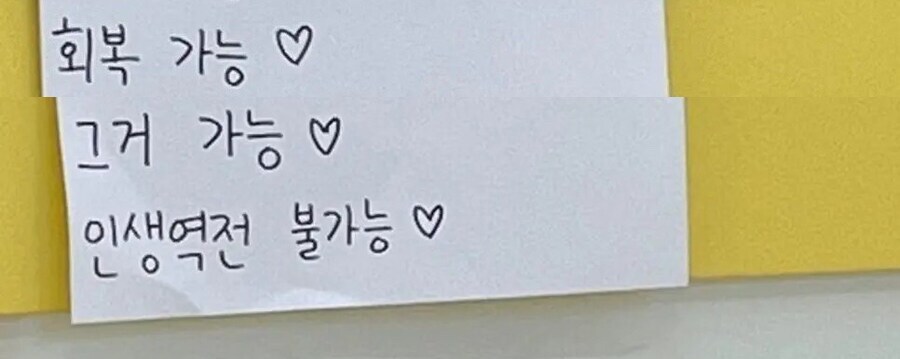 회복 가능 ♡
그거 가능 ♡
인생역전 불가능 ♡